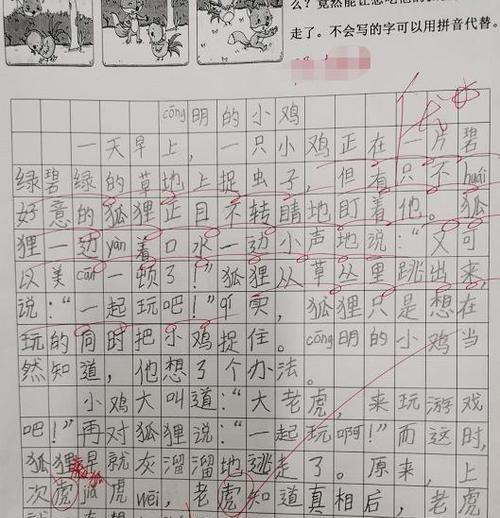 么？竟然能让
走了。不会写的字可以用拼音代替。
cōng明的小鸡
一天早上，一只小鸡正在一片碧
绿碧绿的草地上捉虫子，但有只不huái
好意的狐狸正目不转睛地盯着他。狐
狸一边yán着口水一动小声地说：“又可
以美cān一顿了！”狐狸从草丛里跳出来，
说：“一起玩吧！”qí实，狐狸只是想在
玩的同时把小鸡捉住。cōng明的小鸡当
然知道，他想了个办法。
小鸡大叫道：“大老虎，来玩游戏
吧！”再对狐狸说：“一起玩啊！”而这时，
狐狸早就灰溜溜地逃走了。原来，上
次虎jiǎ虎wēi，老虎知道真相后，老虎